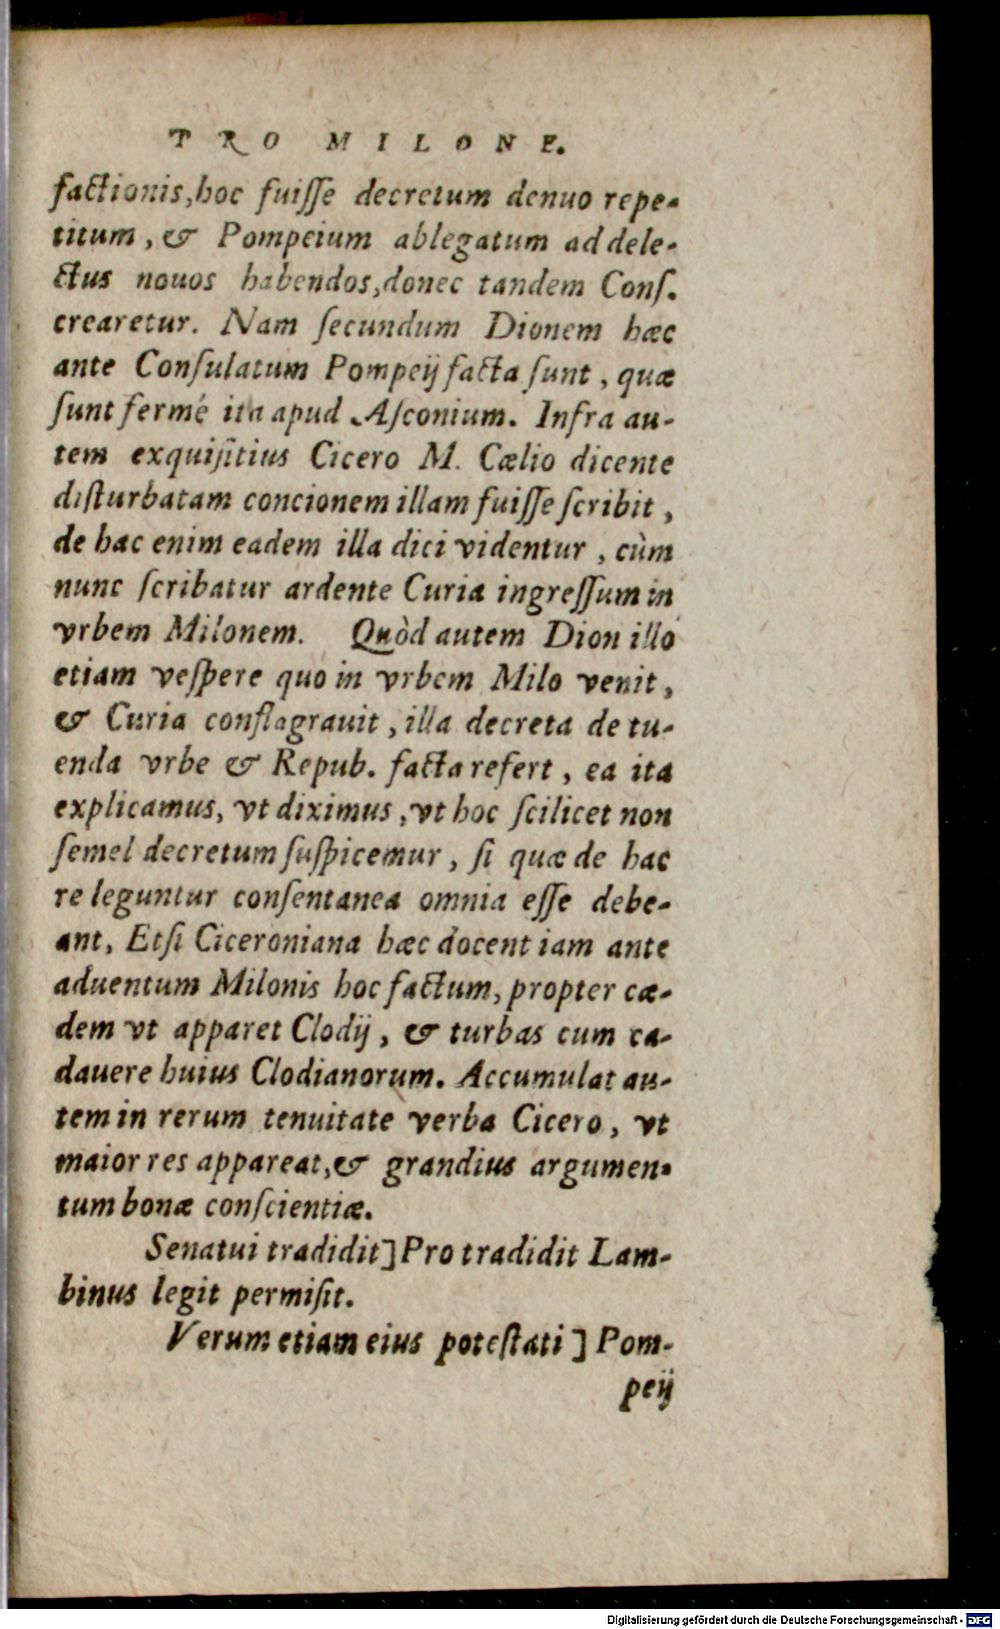 PRO MILONE.
factionis, hoc fuiſſe decretum denuo repe-
titum, & Pompeium ablegatum ad dele-
ctus nouos habendos, donec tandem Conſ.
crearetur. Nam ſecundum Dionem hæc
ante Conſulatum Pompeij facta ſunt, quæ
ſunt fermé ita apud Aſconium. Infra au-
tem exquiſitius Cicero M. Cælio dicente
diſturbatam concionem illam fuiſſe ſcribit,
de hac enim eadem illa dici videntur, cùm
nunc ſcribatur ardente Curia ingreſſum in
vrbem Milonem. Quòd autem Dion illo
etiam veſpere quo in vrbem Milo venit,
& Curia conflagrauit, illa decreta de tu-
enda vrbe & Repub. facta refert, ea ita
explicamus, vt diximus, vt hoc ſcilicet non
ſemel decretum ſuſpicemur, ſi quæ de hac
re leguntur conſentanea omnia eſſe debe-
ant, Etſi Ciceroniana hæc docent iam ante
aduentum Milonis hoc factum, propter cæ-
dem vt apparet Clodij, & turbas cum ca-
dauere huius Clodianorum. Accumulat au-
tem in rerum tenuitate verba Cicero, vt
maior res appareat, & grandius argumen-
tum bonæ conſcientiæ.
Senatui tradidit] Pro tradidit Lam-
binus legit permiſit.
Verum etiam eius poteſtati] Pom-
peij
Digitalisierung gefördert durch die Deutsche Forschungsgemeinschaft - DFG